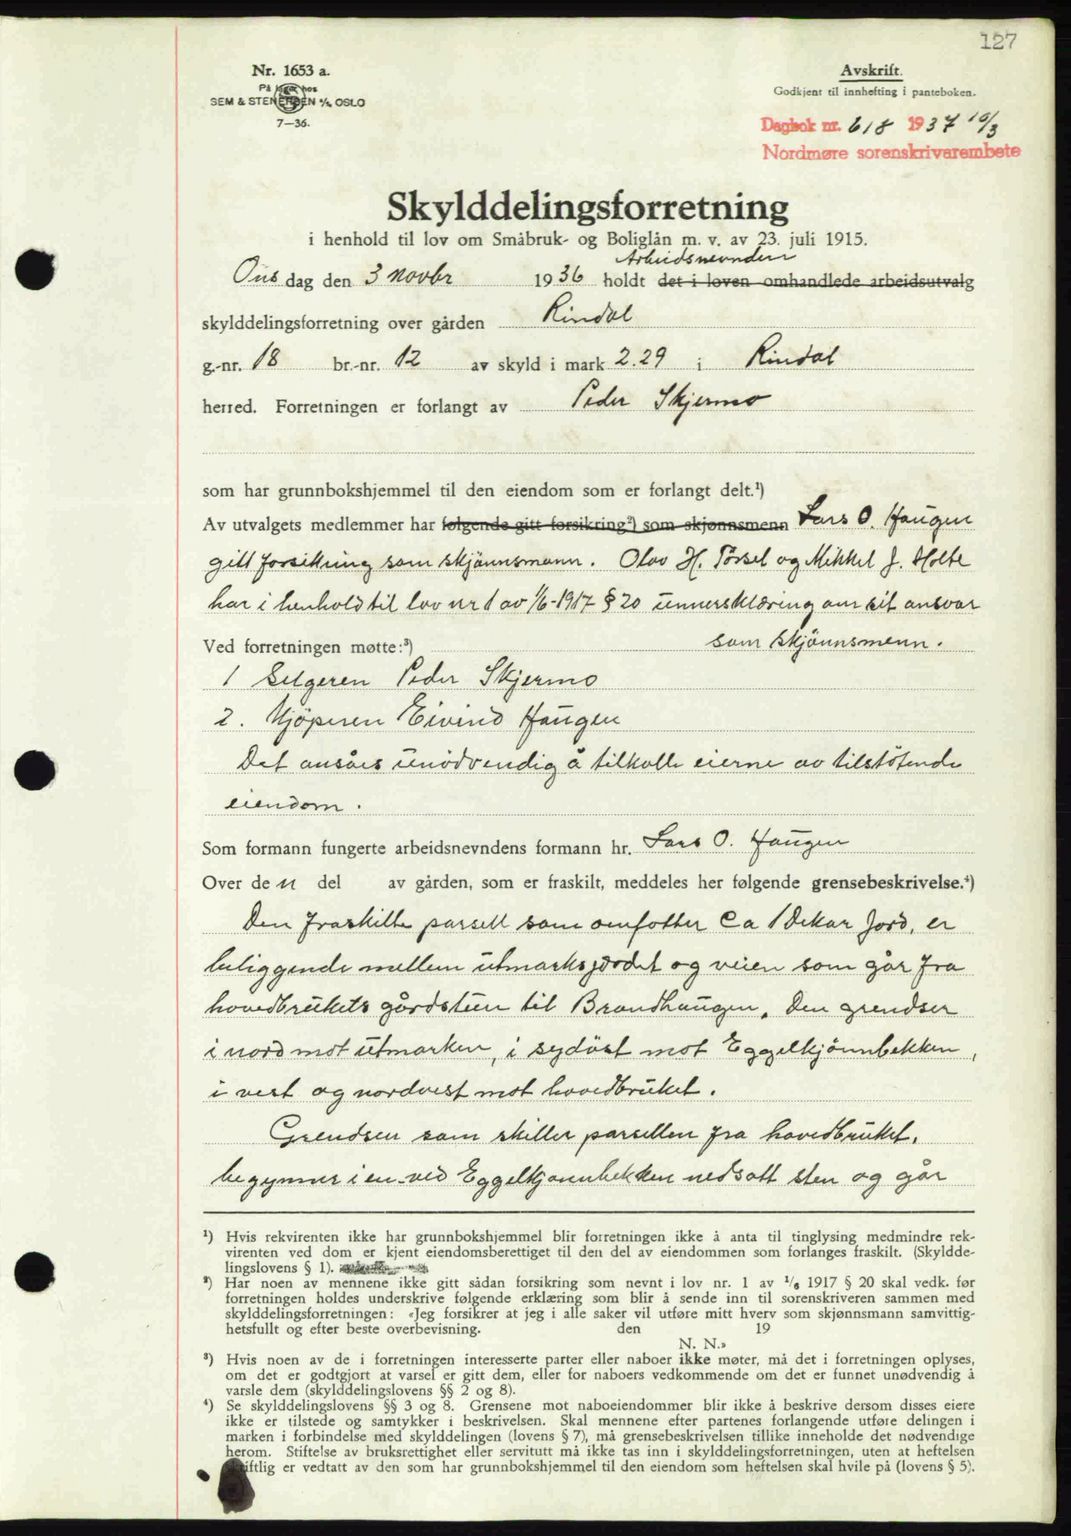 127
Nr. 1653 a.
På lager hos
SEM & STENERSEN A/S, OSLO
7—36.
Avskrift.
Godkjent til innhefting i panteboken.
Dagbok nr. 618 1937 10/3
Nordmøre sorenskrivarembete
Skylddelingsforretning
i henhold til lov om Småbruk- og Boliglån m. v. av 23. juli 1915.
Arbeidsnevnden
Onsdag den 3 novbr 1936 holdt det i loven omhandlede arbeidsutvalg
skylddelingsforretning over gården Rindal
g.-nr. 18 br.-nr. 12 av skyld i mark 2.29 i Rindal
herred. Forretningen er forlangt av Peder Skjermo
som har grunnbokshjemmel til den eiendom som er forlangt delt.¹)
Av utvalgets medlemmer har følgende gitt forsikring²) som skjønnsmenn Lars O. Haugen
gitt forsikring som skjønnsmann. Olav H. Tørset og Mikkel J. Holte
har i henhold til lov nr 1 av 1/6-1917 § 20 unnerskl­æring om sit ansvar
som skjönnsmenn.
Ved forretningen møtte:³)
1 Selgeren Peder Skjermo
2. Kjöperen Eivind Haugen
Det ansåes unödvendig å tilkalle eierne av tilstötende
eiendom.
Som formann fungerte arbeidsnevndens formann hr. Lars O. Haugen
Over den del av gården, som er fraskilt, meddeles her følgende grensebeskrivelse.⁴)
Den fraskilte parsell som omfatter Ca 1 Dekar Jord, er
beliggende mellem utmarksjordet og veien som går fra
hovedbrukets gårdstun til Brandhaugen. Den grendser
i nord mot utmarken, i sydöst mot Eggelkjönnbekken,
i vest og nordvest mot hovedbruket.
Grendsen som skiller parsellen fra hovedbruket,
begynner i en ved Eggelkjønnbekken nedsatt sten og går
¹) Hvis rekvirenten ikke har grunnbokshjemmel blir forretningen ikke å anta til tinglysing medmindre rek-
virenten ved dom er kjent eiendomsberettiget til den del av eiendommen som forlanges fraskilt. (Skyldde-
lingslovens § 1).
²) Har noen av mennene ikke gitt sådan forsikring som nevnt i lov nr. 1 av 1/6 1917 § 20 skal vedk. før
forretningen holdes underskrive følgende erklæring som blir å sende inn til sorenskriveren sammen med
skylddelingsforretningen: «Jeg forsikrer at jeg i alle saker vil utføre mitt hverv som skjønnsmann samvittig-
hetsfullt og efter beste overbevisning. den 19
N. N.»
³) Hvis noen av de i forretningen interesserte parter eller naboer ikke møter, må det i forretningen oplyses,
om det er godtgjort at varsel er gitt dem, eller for naboers vedkommende om det er funnet unødvendig å
varsle dem (skylddelingslovens §§ 2 og 8).
⁴) Se skylddelingslovens §§ 3 og 8. Grensene mot naboeiendommer blir ikke å beskrive dersom disses eiere
ikke er tilstede og samtykker i beskrivelsen. Skal mennene efter partenes forlangende utføre delingen i
marken i forbindelse med skylddelingen (lovens § 7), må grensebeskrivelsen tillike inneholde det nødvendige
herom. Stiftelse av bruksrettighet eller servitutt må ikke tas inn i skylddelingsforretningen, uten at heftelsen
skriftlig er vedtatt av den som har grunnbokshjemmel til den eiendom som heftelsen skal hvile på (lovens § 5).